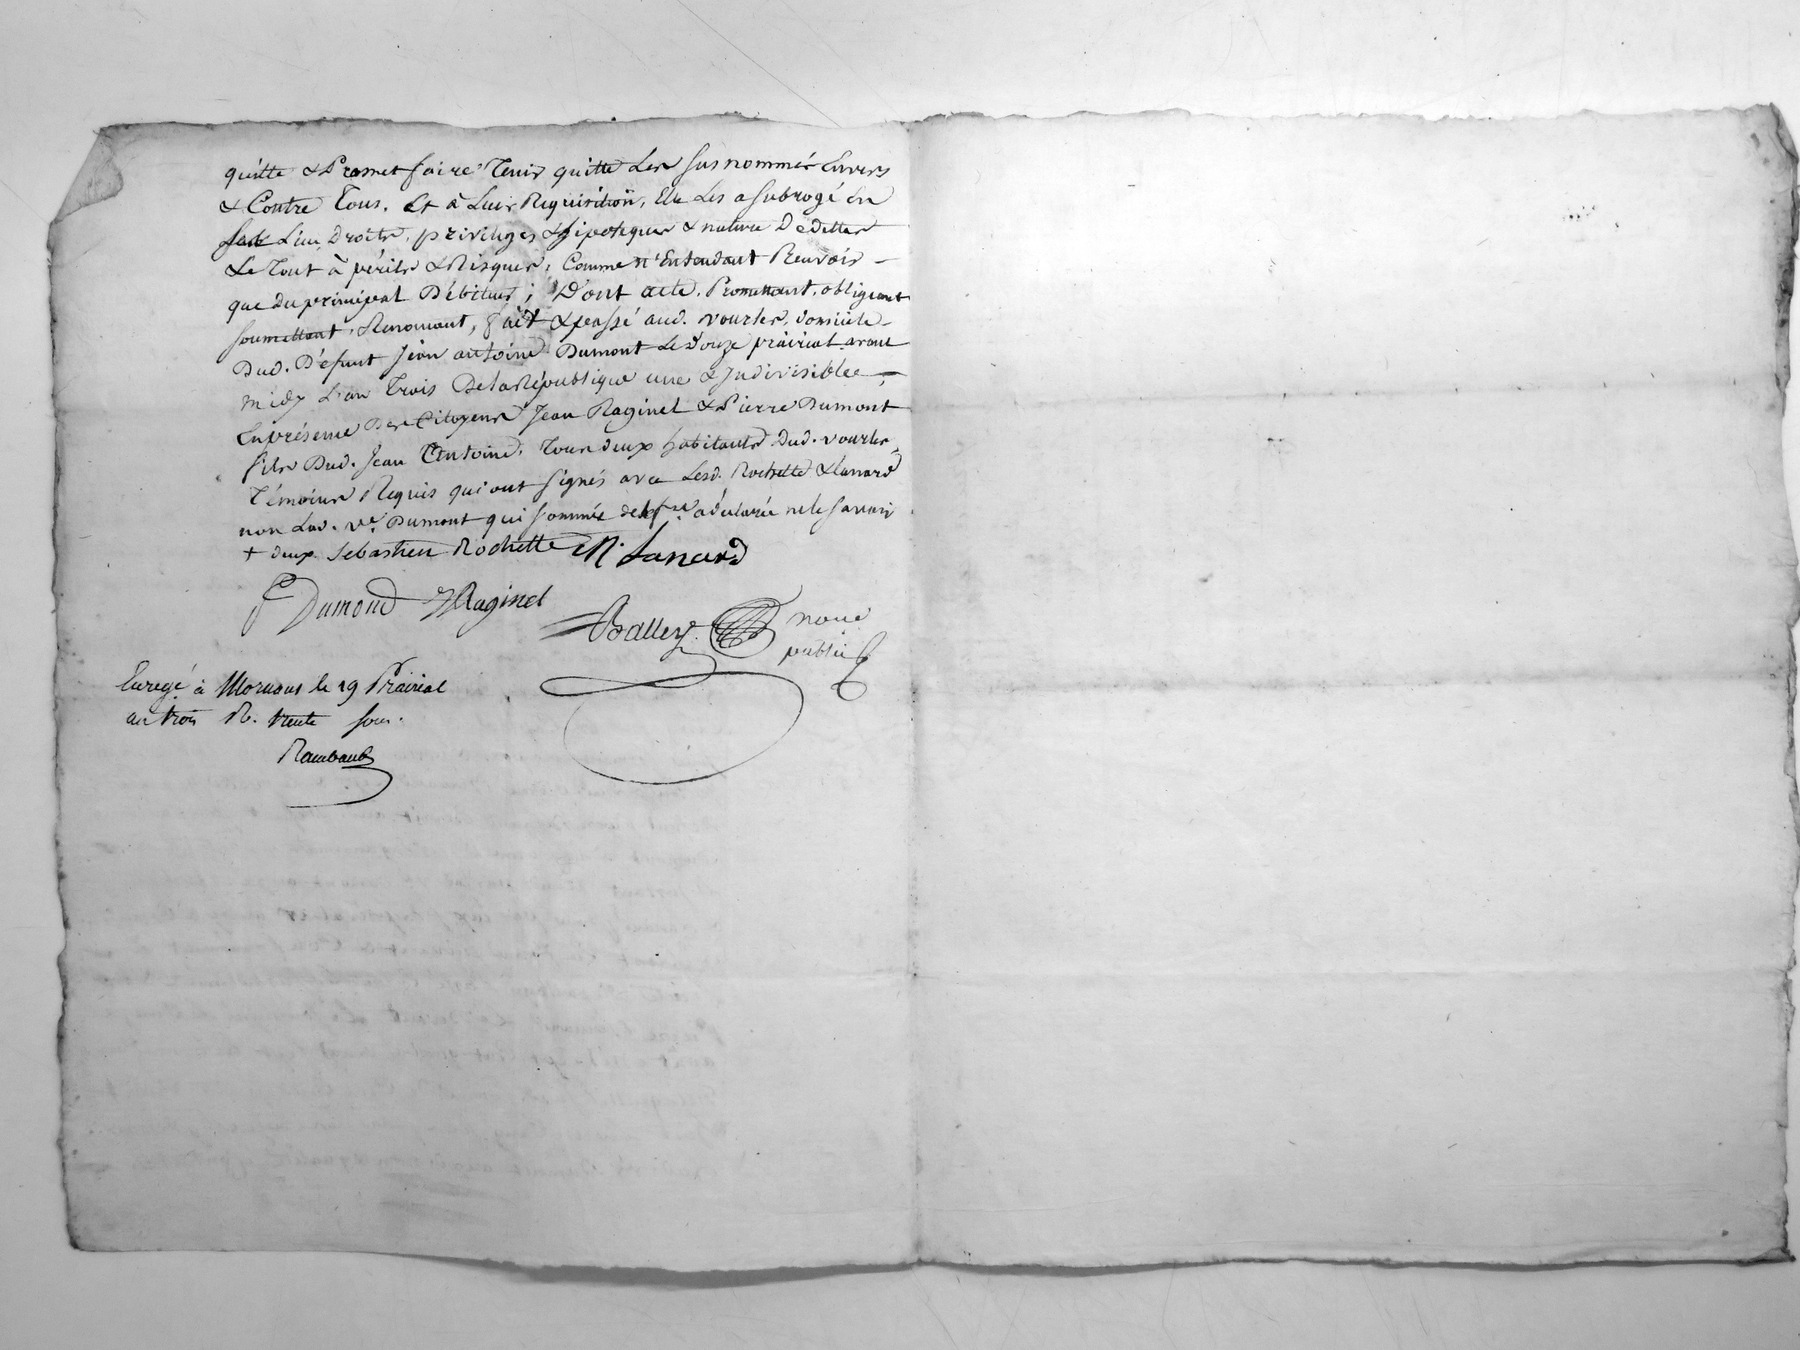 quitte & Promet faire Tenir quitte les susnommés Envers
& Contre Tous. Et à Leur Requisition, Elle Les a subrogé en
Lieu, Droits, privileges & hipoteques & nature De dettes
Le Tout à périls & Risques, Comme n'Entendant Revoir —
que du principal Débiteur; Dont acte. Promettant, obligeant
soumettant, Renoncant, fait & passé aud. vourles, domicile
Dud. Défunt Jean antoine Dumont Le Douze prairial avant
midy L'an Trois De la République une & Indivisible —,
En présence Des Citoyens Jean Raginel & Pierre Dumont
fils Dud. Jean Antoine, Tous deux habitants Dud. vourles,
Témoins Requis qui ont signés avec Lesd. Rochette & Lanard
non Lad. ve. Dumont qui sommée de le fre. a déclarée ne le savoir
+ deux. Sebastien Rochette M. Lanard
P Dumond J Raginel
Balley
nore
public
Enregé à Mornant le 19 Prairial
an trois R. trente sous.
Raimbault